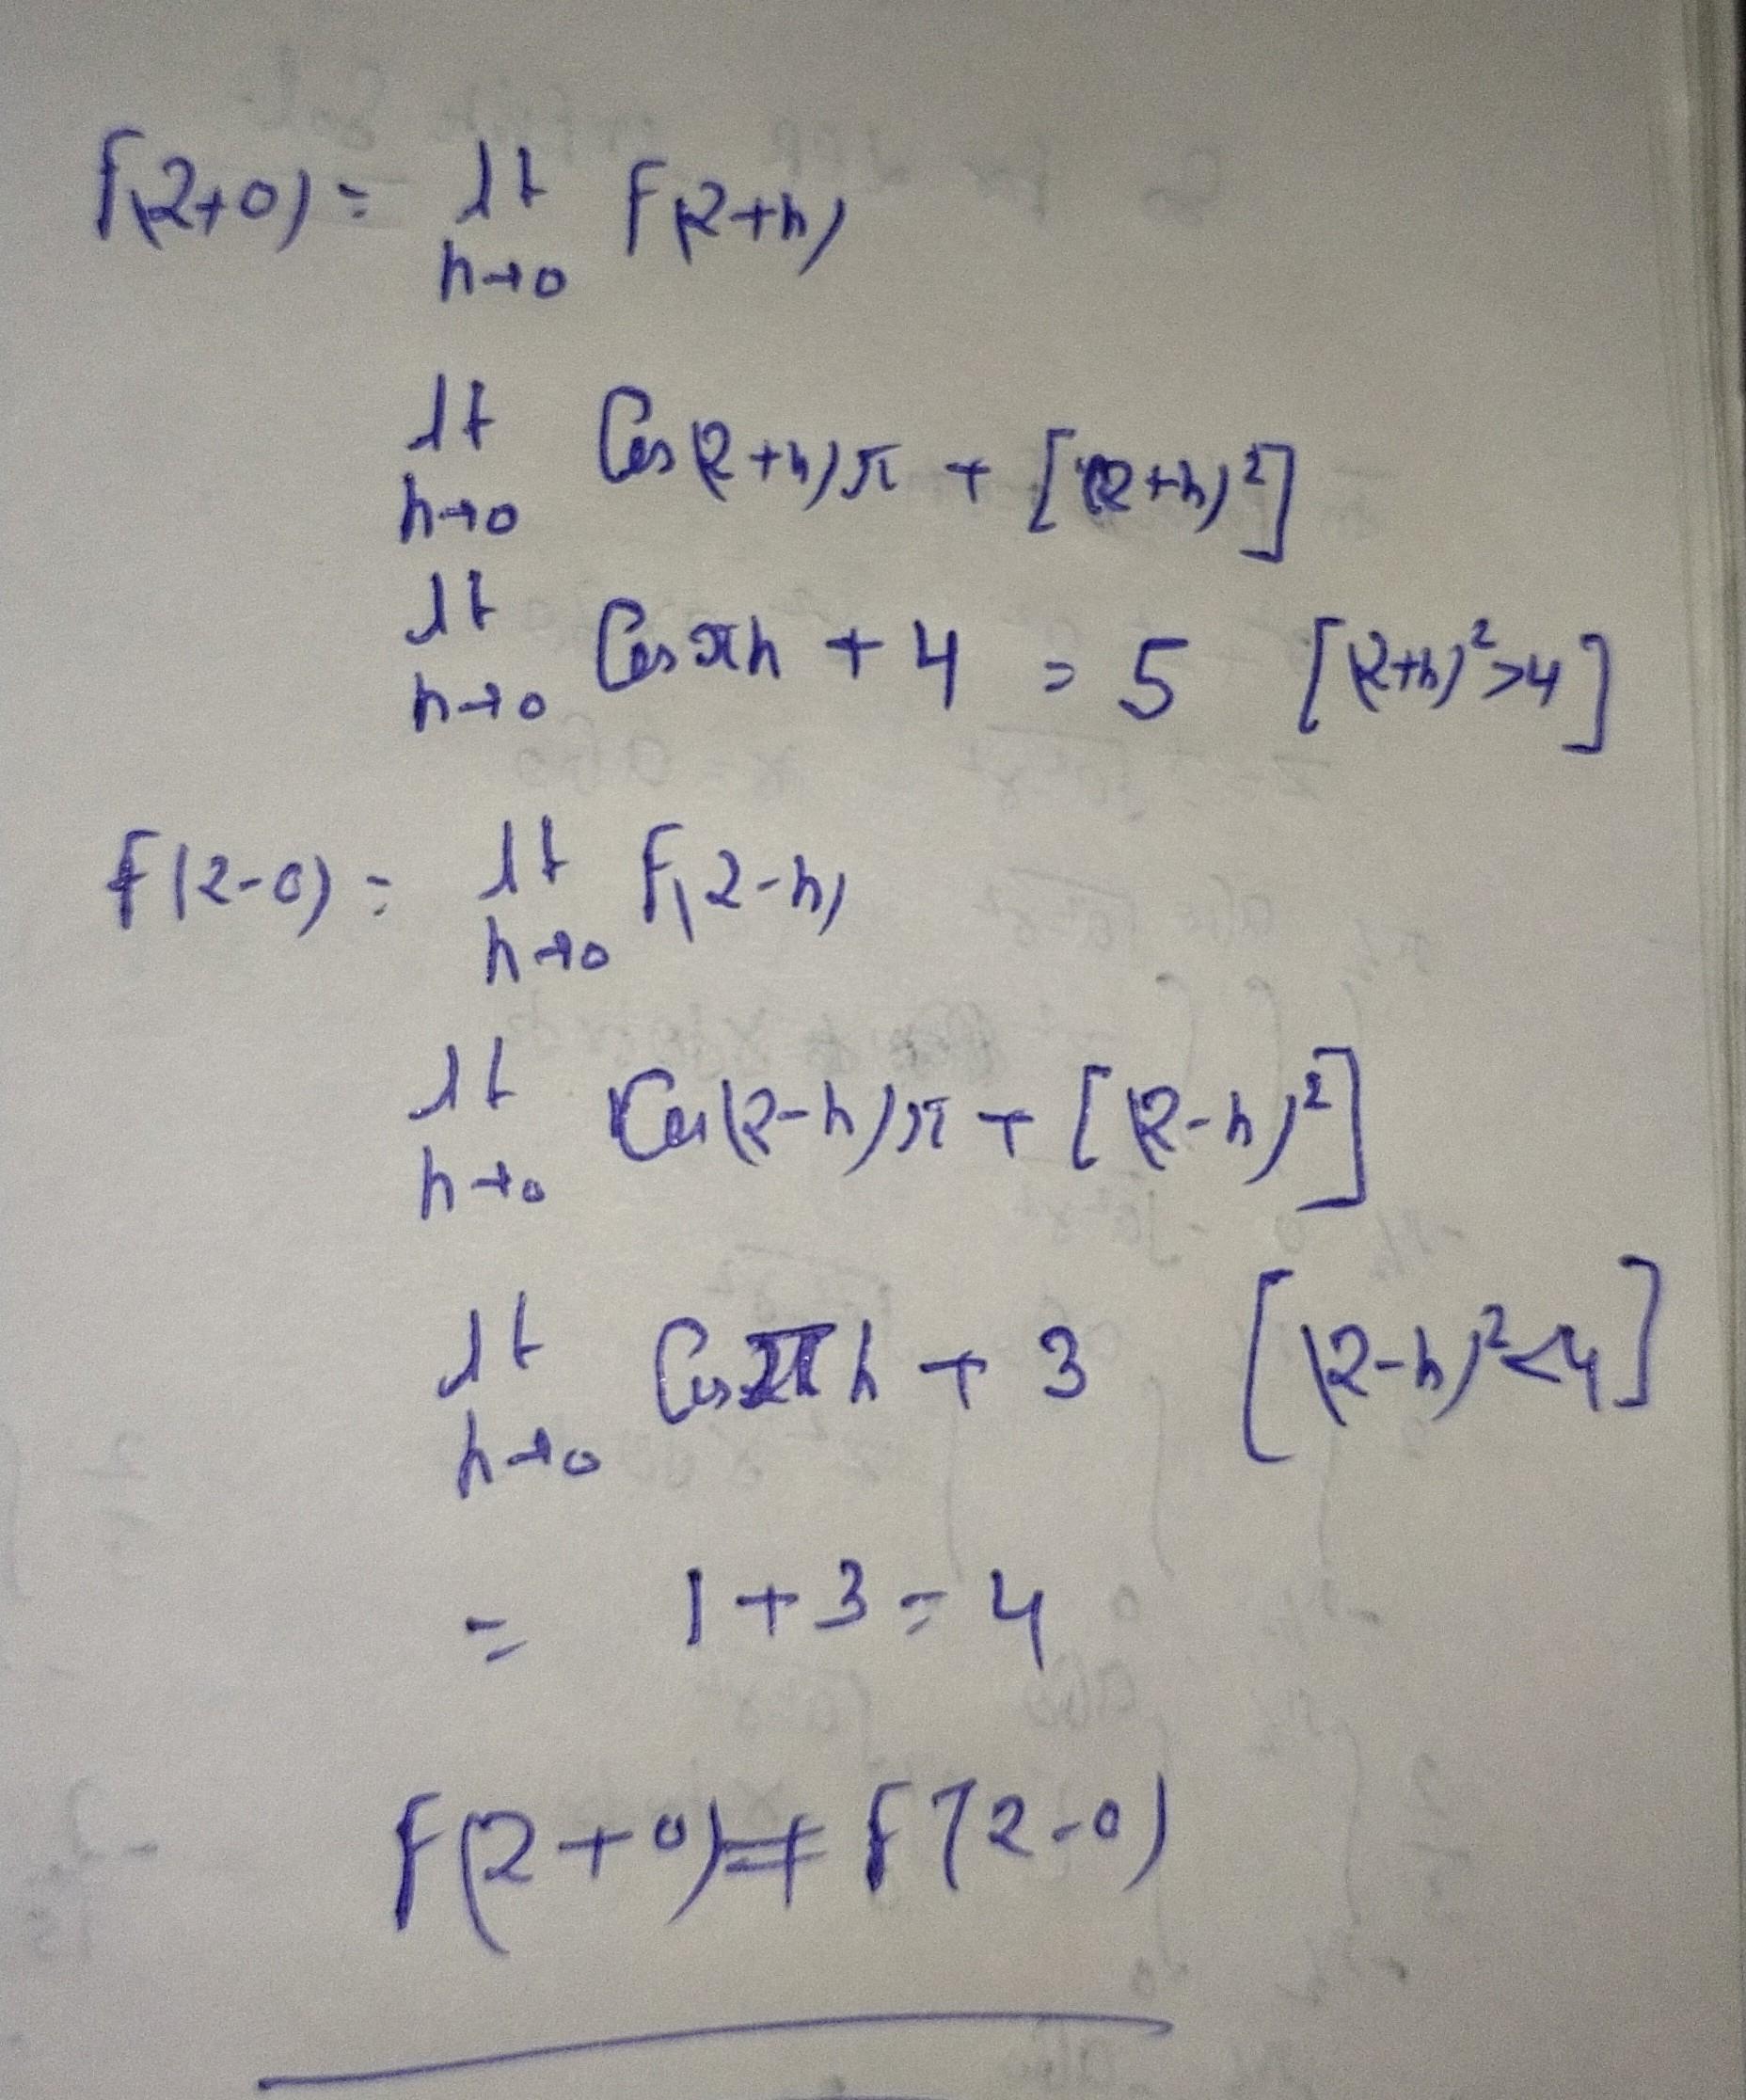 f(2+0) = lt f(2+h)
h→0
lt Cos(2+h)π + [(2+h)²]
h→0
lt Cosπh + 4 = 5 [(2+h)²>4]
h→0
f(2-0) = lt f(2-h)
h→0
lt Cos(2-h)π + [(2-h)²]
h→0
lt Cosπh + 3 [(2-h)²<4]
h→0
= 1+3=4
f(2+0) ≠ f(2-0)